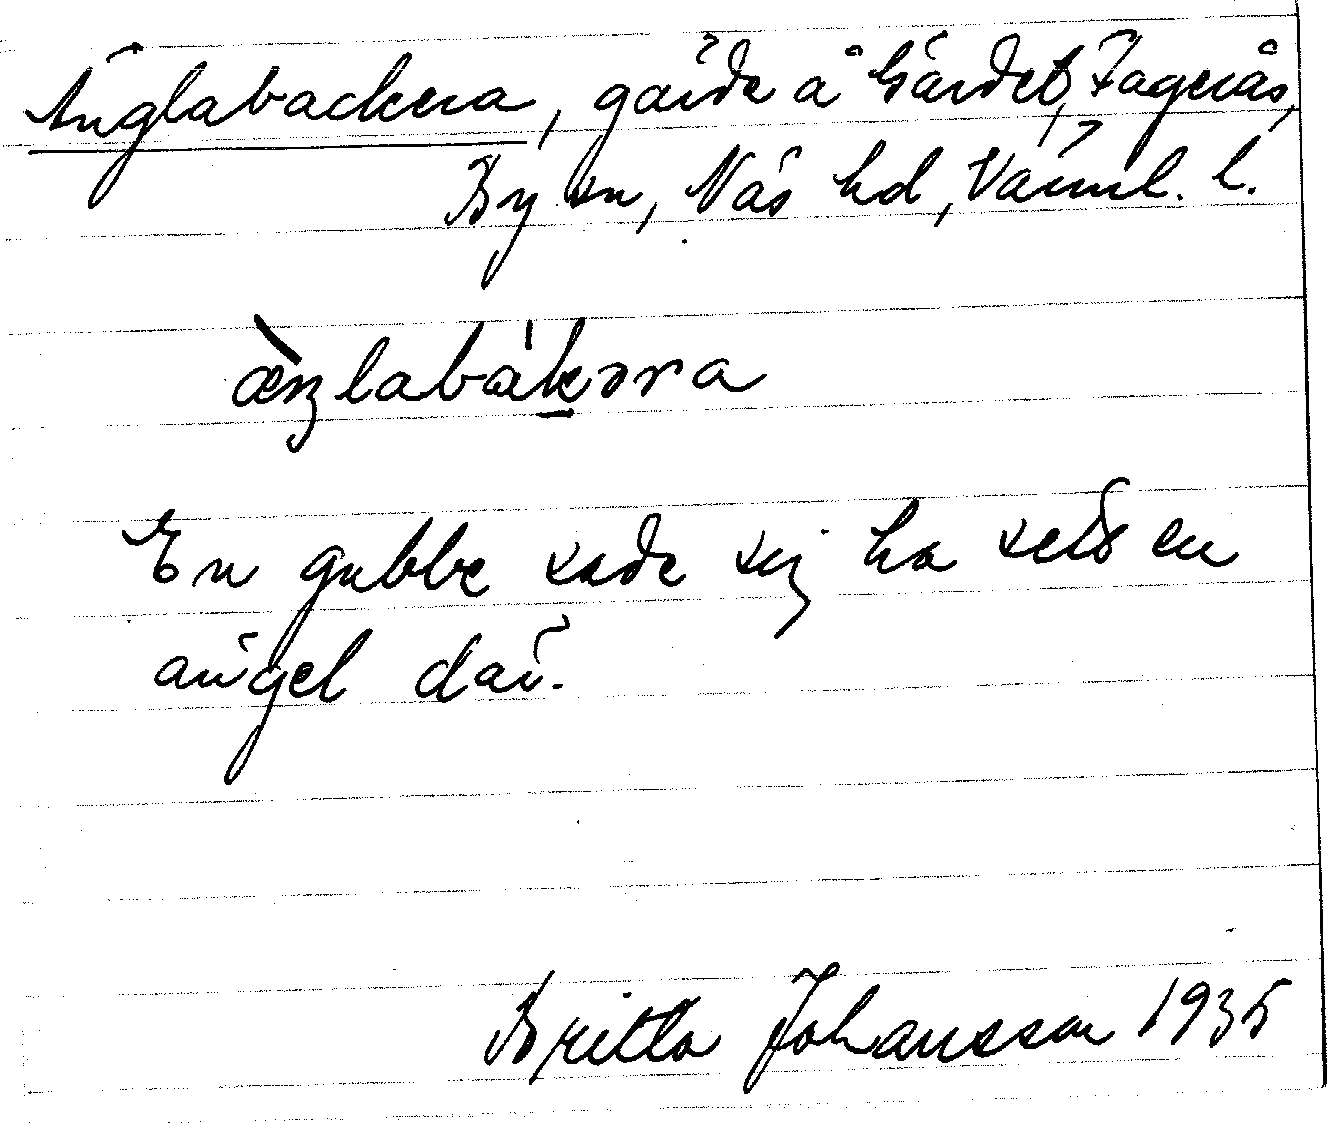 Änglabackera, gärde å Gärdet, Fagerås,
By sn, Näs hd, Värml. l.
æ̀ŋlabàkəra
En gubbe sade sej ha sett en
ängel där.
Britta Johansson 1935